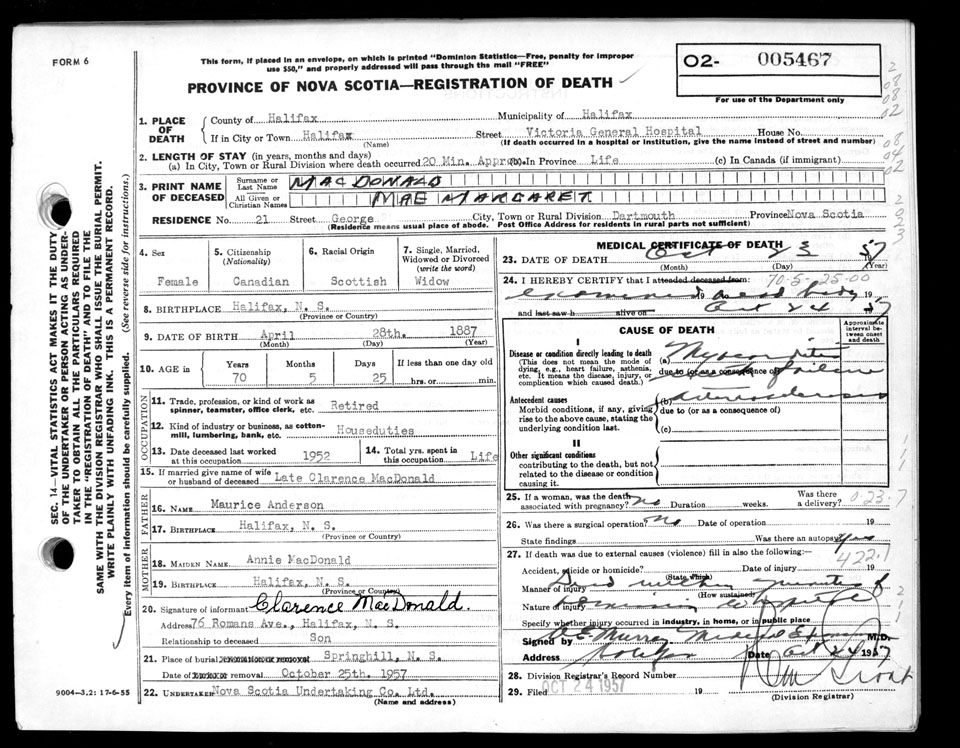 FORM 6
This form, if placed in an envelope, on which is printed "Dominion Statistics—Free, penalty for improper
use $50," and properly addressed will pass through the mail "FREE"
PROVINCE OF NOVA SCOTIA—REGISTRATION OF DEATH
O2- 005467
For use of the Department only
1. PLACE OF DEATH
County of Halifax Municipality of Halifax
If in City or Town Halifax Street Victoria General Hospital House No.
(Name) (If death occurred in a hospital or institution, give the name instead of street and number)
2. LENGTH OF STAY (in years, months and days)
(a) In City, Town or Rural Division where death occurred 20 Min. Approx. (b) In Province Life (c) In Canada (if immigrant)
3. PRINT NAME OF DECEASED
Surname or Last Name MACDONALD
All Given or Christian Names MAE MARGARET
RESIDENCE No. 21 Street George City, Town or Rural Division Dartmouth Province Nova Scotia
(Residence means usual place of abode. Post Office Address for residents in rural parts not sufficient)
4. Sex
Female
5. Citizenship
(Nationality)
Canadian
6. Racial Origin
Scottish
7. Single, Married, Widowed or Divorced
(write the word)
Widow
8. BIRTHPLACE Halifax, N. S.
(Province or Country)
9. DATE OF BIRTH April 28th. 1887
(Month) (Day) (Year)
10. AGE in Years Months Days If less than one day old
70 5 25 hrs. or min.
OCCUPATION
11. Trade, profession, or kind of work as
spinner, teamster, office clerk, etc. Retired
12. Kind of industry or business, as cotton-
mill, lumbering, bank, etc. Houseduties
13. Date deceased last worked
at this occupation 1952
14. Total yrs. spent in
this occupation Life
15. If married give name of wife
or husband of deceased Late Clarence MacDonald
FATHER
16. NAME Maurice Anderson
17. BIRTHPLACE Halifax, N. S.
(Province or Country)
MOTHER
18. MAIDEN NAME Annie MacDonald
19. BIRTHPLACE Halifax, N. S.
(Province or Country)
20. Signature of informant Clarence MacDonald.
Address 76 Romans Ave., Halifax, N. S.
Relationship to deceased Son
21. Place of burial, Springhill, N. S.
Date of removal October 25th. 1957
22. UNDERTAKER Nova Scotia Undertaking Co. Ltd.
(Name and address)
9004—3.2: 17-6-55
MEDICAL CERTIFICATE OF DEATH
23. DATE OF DEATH Oct 23 57
(Month) (Day) (Year)
24. I HEREBY CERTIFY that I attended deceased from: 70-5-25-00
examined 19 dead body
and last saw h alive on Oct 24 57
CAUSE OF DEATH
Approximate interval between onset and death
I
Disease or condition directly leading to death
(This does not mean the mode of
dying, e.g., heart failure, asthenia,
etc. It means the disease, injury, or
complication which caused death.)
(a)
due to (or as a consequence of) failure
Antecedent causes
Morbid conditions, if any, giving
rise to the above cause, stating the
underlying condition last.
(b) arteriosclerosis
due to (or as a consequence of)
(c)
II
Other significant conditions
contributing to the death, but not
related to the disease or condition
causing it.
25. If a woman, was the death
associated with pregnancy? no Duration weeks. Was there a delivery? 0-23-7
26. Was there a surgical operation? no Date of operation 19
State findings Was there an autopsy? Yes
27. If death was due to external causes (violence) fill in also the following:— 422.1
Accident, suicide or homicide? Date of injury 19
(State which)
Manner of injury Dead within minutes of
(How sustained)
Nature of injury
Specify whether injury occurred in industry, in home, or in public
Signed by A. E. Murray Medical Examiner M.D.
Address Halifax Date Oct 24 1957
28. Division Registrar's Record Number
29. Filed OCT 24 1957 19
(Division Registrar)
SEC. 14—VITAL STATISTICS ACT MAKES IT THE DUTY
OF THE UNDERTAKER OR PERSON ACTING AS UNDER-
TAKER TO OBTAIN ALL THE PARTICULARS REQUIRED
IN THE "REGISTRATION OF DEATH" AND TO FILE THE
SAME WITH THE DIVISION REGISTRAR WHO SHALL ISSUE THE BURIAL PERMIT.
WRITE PLAINLY WITH UNFADING INK. THIS IS A PERMANENT RECORD.
Every item of information should be carefully supplied. (See reverse side for instructions.)